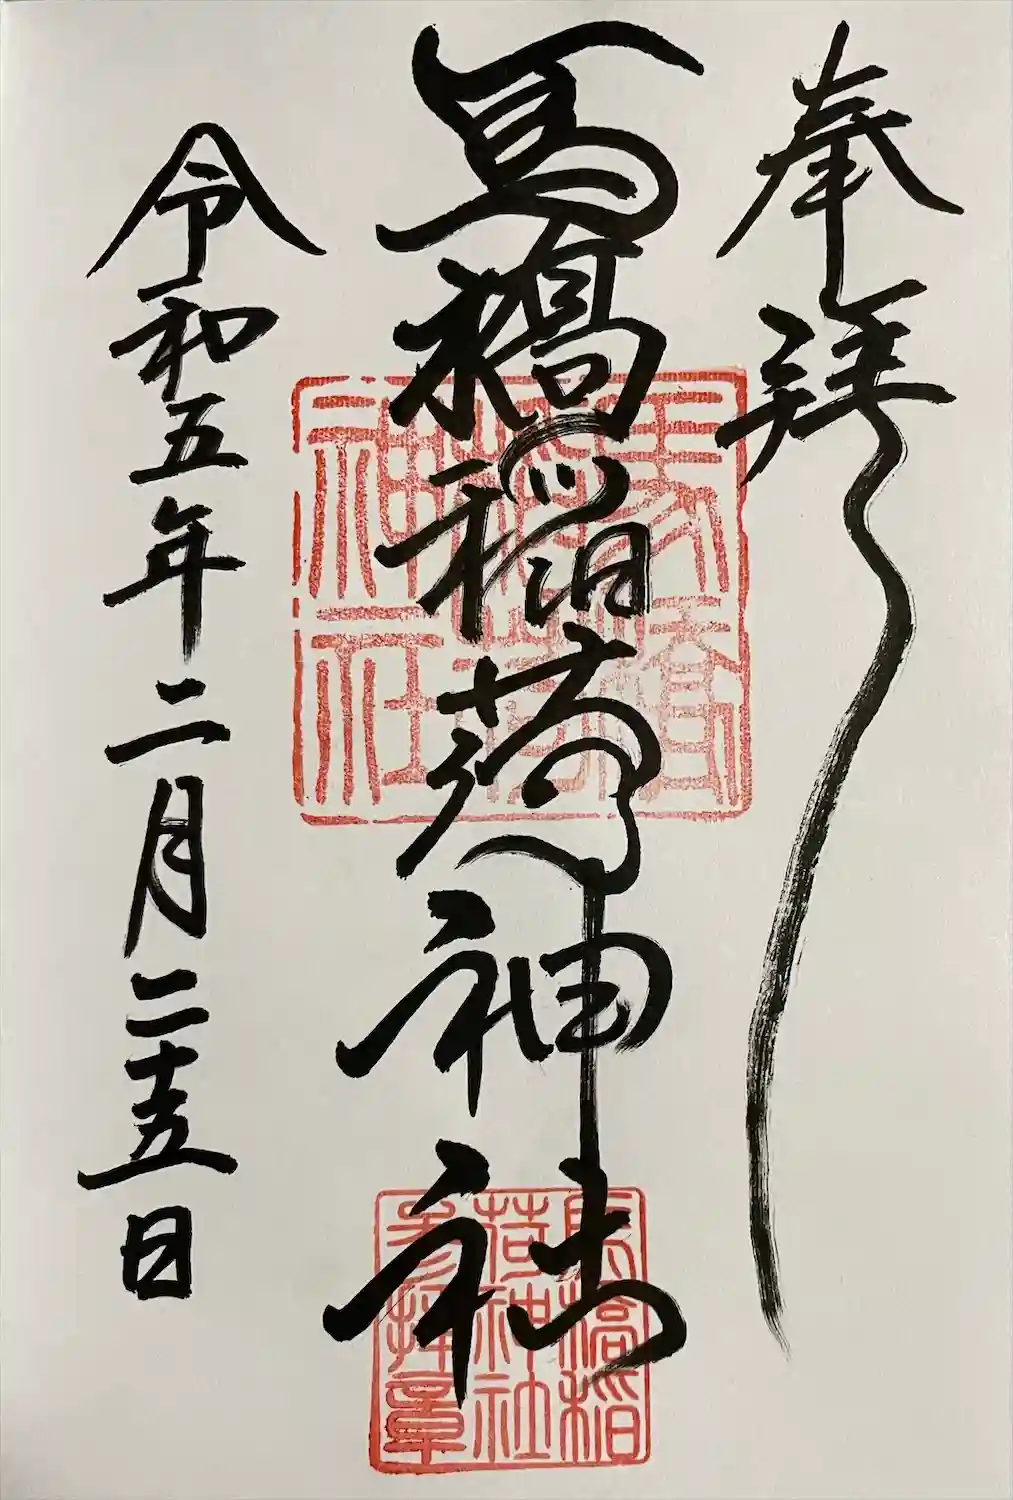 奉拜
馬橋稲荷神社
令和五年二月二十五日
馬橋
稲荷
神社
馬橋稲
荷神社
参拝章